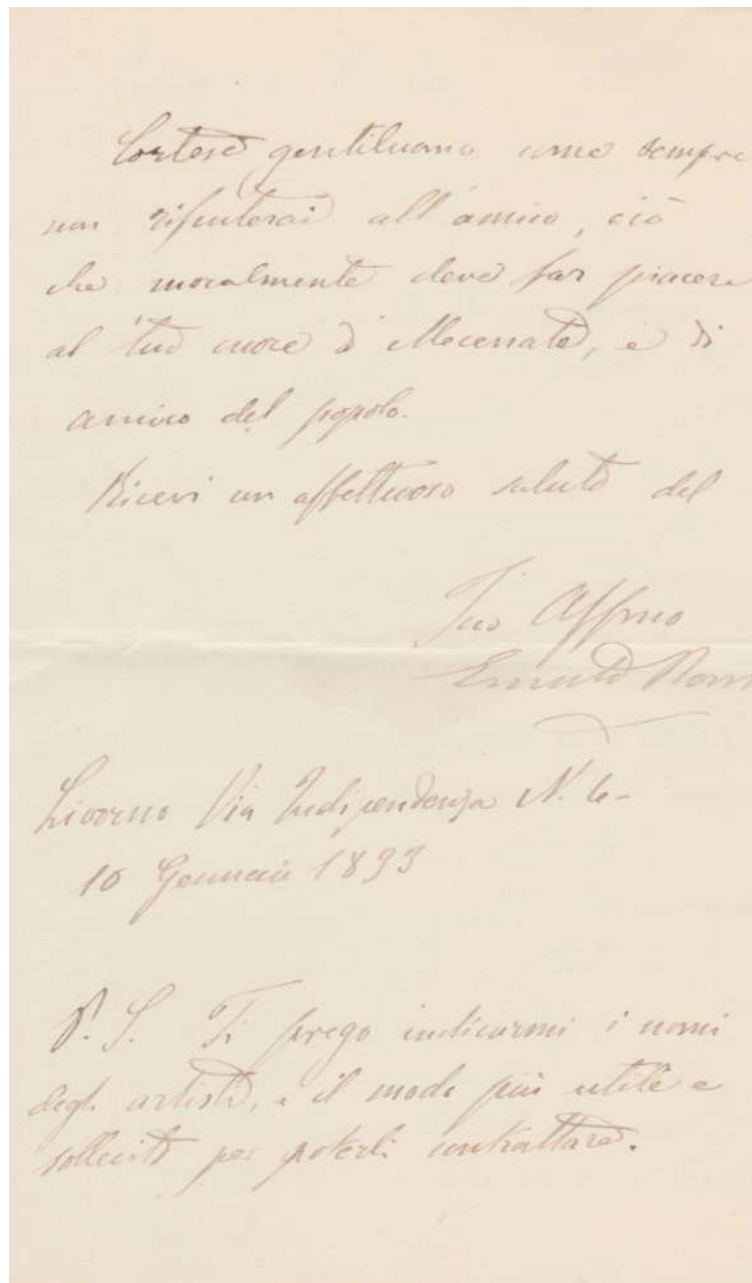 Cortese, gentiluomo come sempre
non rifiuterai all'amico, ciò
che moralmente deve far piacere
al tuo cuore di Mecenate, e di
amico del popolo.
Ricevi un affettuoso saluto del
Tuo Affmo
Livorno Via Indipendenza N. 6-
10 Gennaio 1893
P. S. Ti prego indicarmi i nomi
degli artisti, e il modo più utile e
sollecito per poterli contrattare.